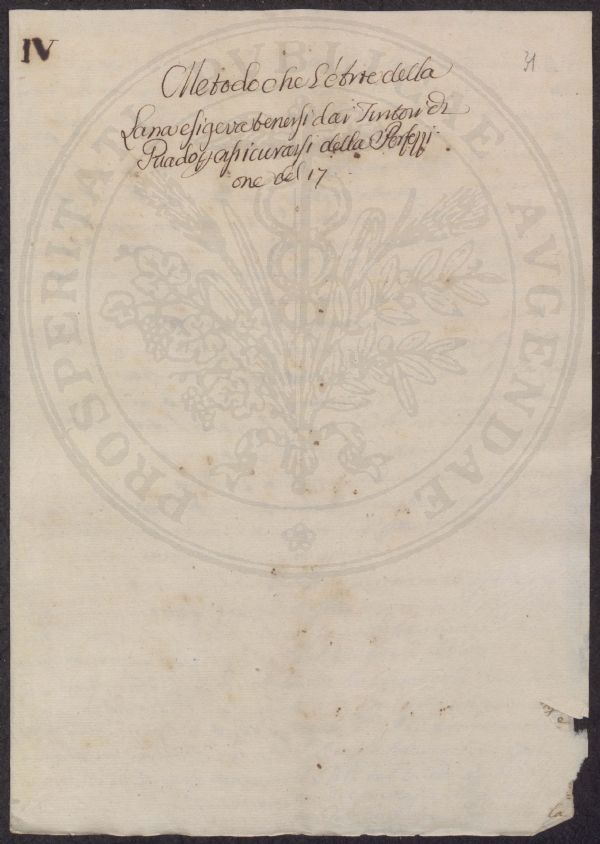 IV
31
Metodo che L'Arte della
Lana esigeva tenersi dai Tintori di
Guado p assicurarsi della Perfezzi
one del 17
PROSPERITATI PUBLICAE AUGENDAE
la